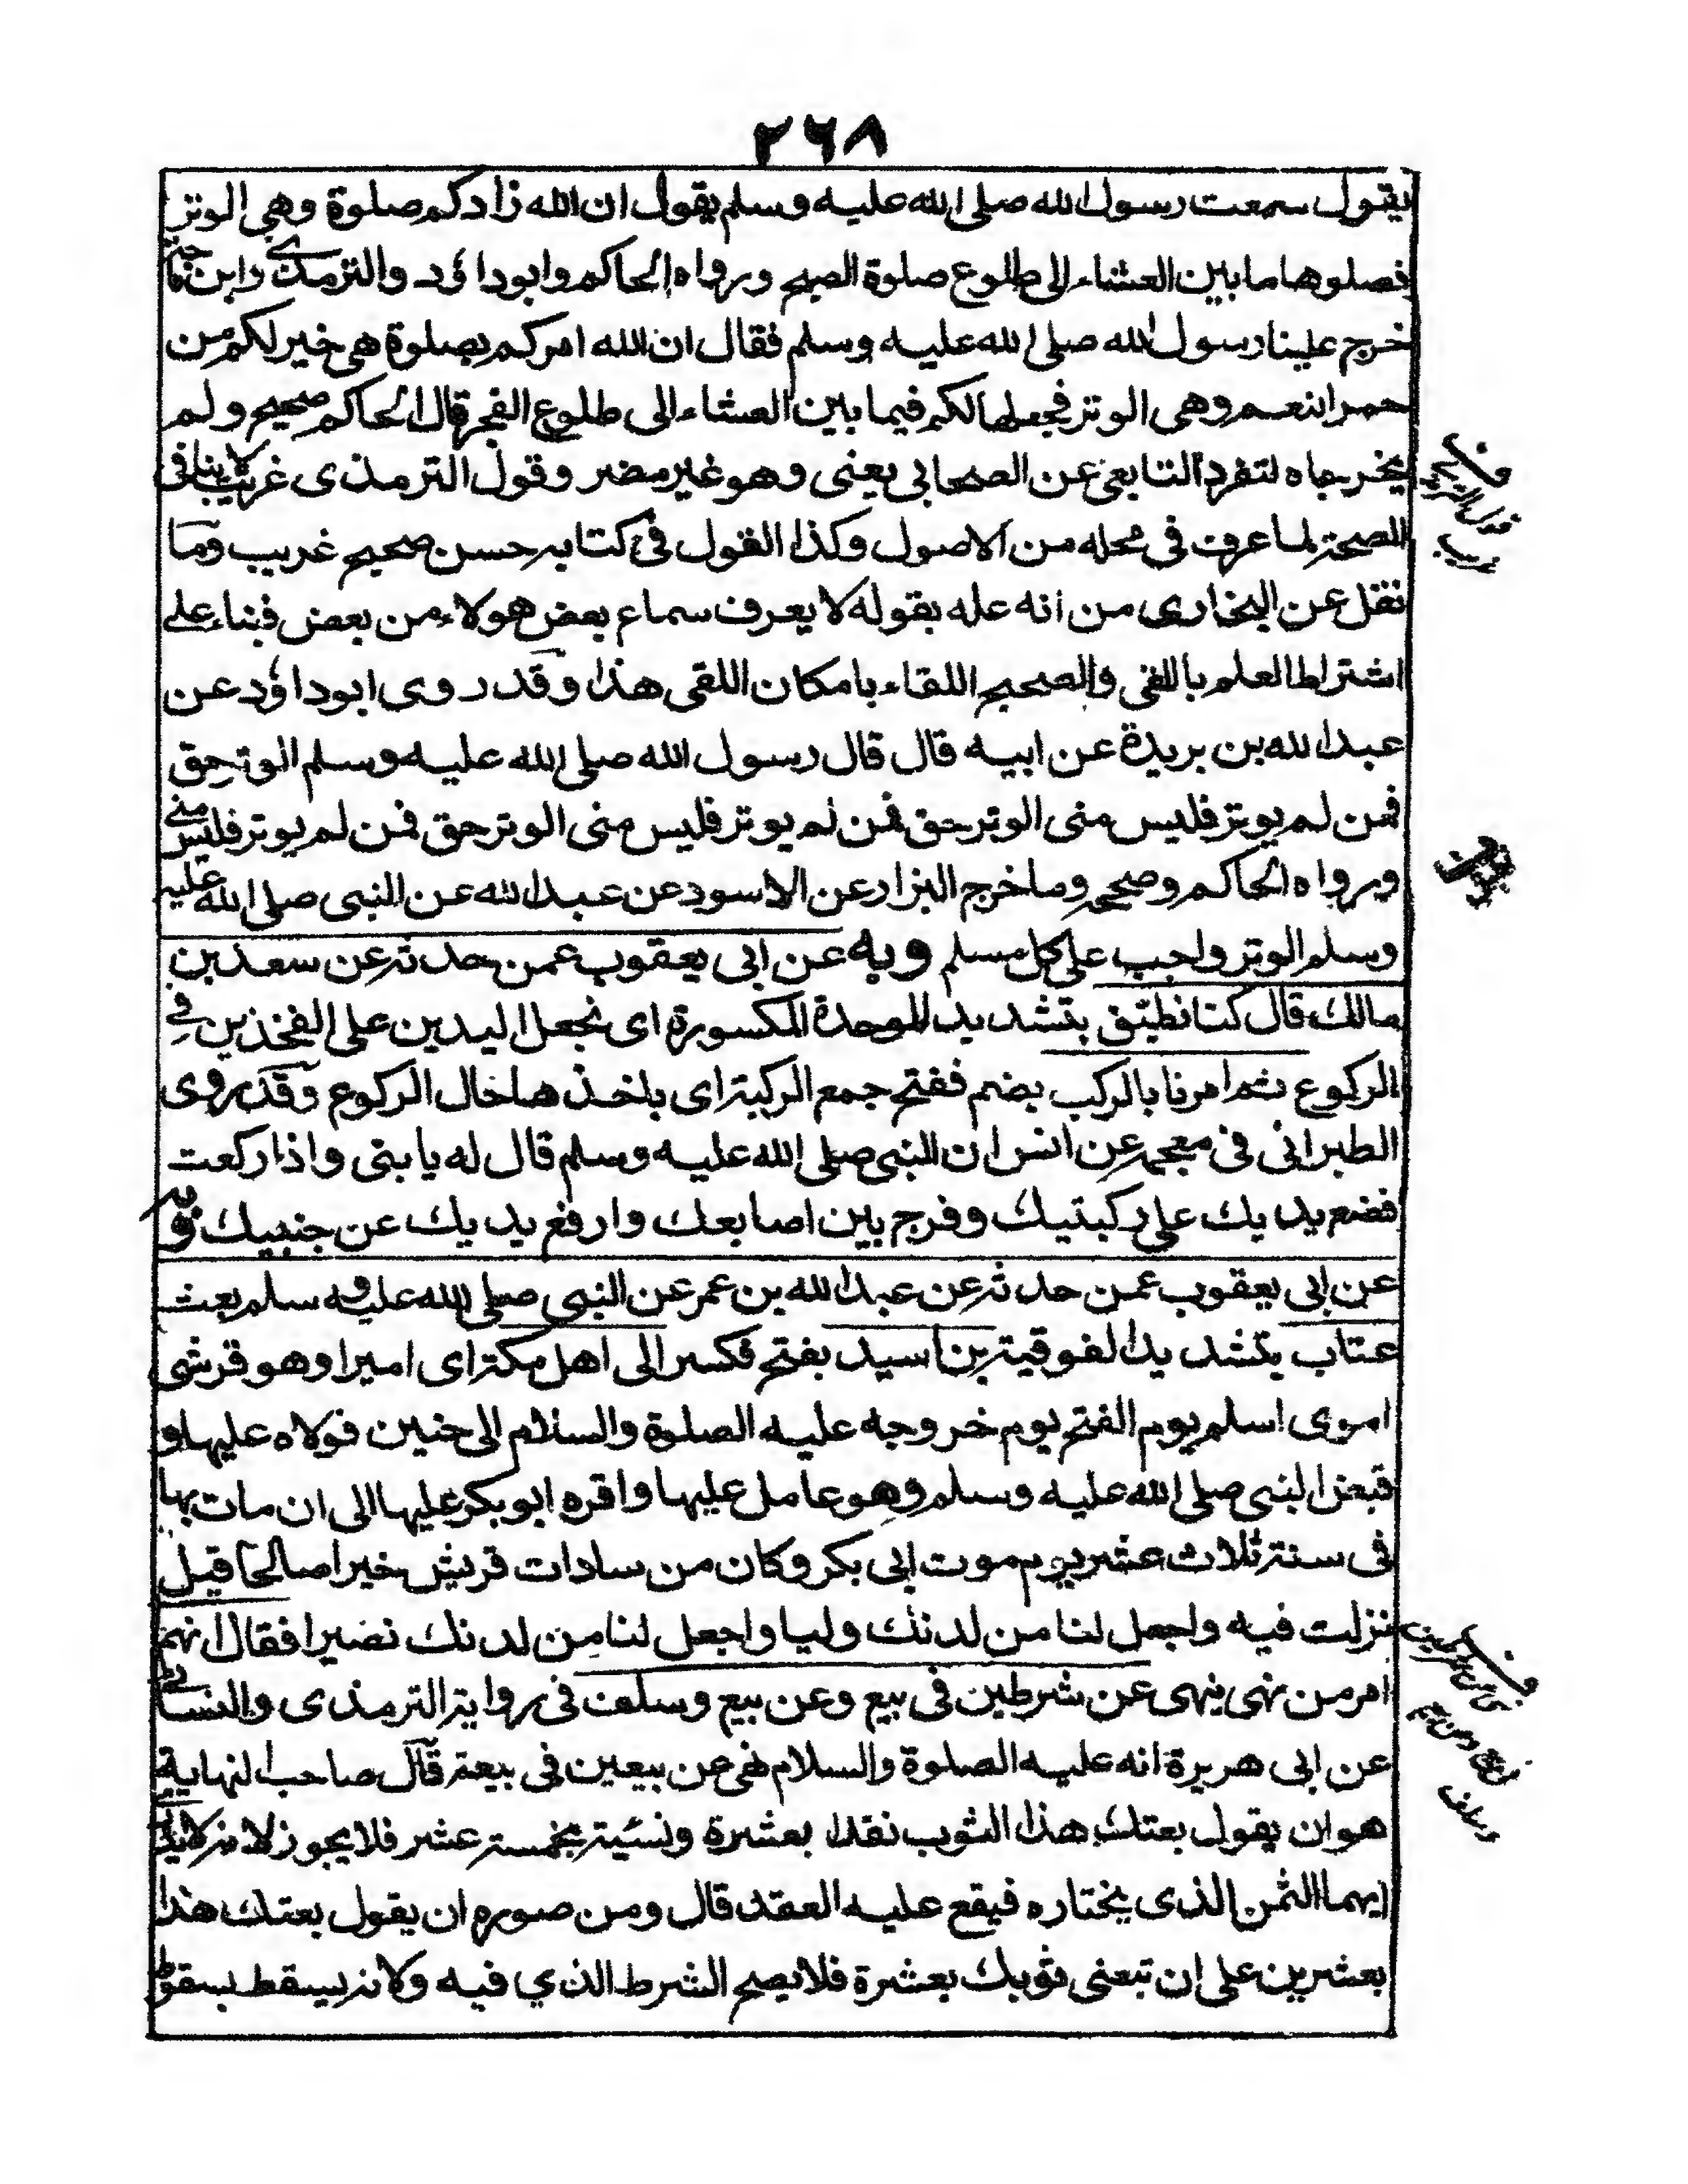 ٢٦٨
يقول سمعت رسول الله صلى الله عليه وسلم يقول ان الله زادكم صلوة وهى الوتر
فصلوها ما بين العشاء الى طلوع صلوة الصبح ورواه الحاكم وابوداؤد والترمذى وابن ماجة
خرج علينا رسول الله صلى الله عليه وسلم فقال ان الله امركم بصلوة هى خير لكم من
حمر النعم وهى الوتر فجعلها لكم فيما بين العشاء الى طلوع الفجر قال الحاكم صحيح ولم
يخرجاه لتفرد التابعى عن الصحابى يعنى وهو غير مضر وقول الترمذى غريب لا ينافى
الصحة لما عرف فى محله من الاصول وكذا القول فى كتابه حسن صحيح غريب وما
نقل عن البخارى من انه عله بقوله لا يعرف سماع بعض هولاء من بعض فبناء على
اشتراط العلم باللقى والصحيح اللقاء بامكان اللقى هذا وقد روى ابوداؤد عن
عبد الله بن بريدة عن ابيه قال قال رسول الله صلى الله عليه وسلم الوتر حق
فمن لم يوتر فليس منى الوتر حق فمن لم يوتر فليس منى الوتر حق فمن لم يوتر فليس منى
ورواه الحاكم وصححه وما خرج البزار عن الاسود عن عبد الله عن النبى صلى الله عليه
وسلم الوتر واجب على كل مسلم وبه عن ابى يعقوب عمن حدثه عن سعد بن
مالك قال كنا نطبّق بتشديد الموحدة المكسورة اى نجعل اليدين على الفخذين فى
الركوع ثم امرنا بالركب بضم ففتح جمع الركبة اى باخذها حال الركوع وقد روى
الطبرانى فى معجمه عن انس ان النبى صلى الله عليه وسلم قال له يا بنى واذا ركعت
فضع يديك على ركبتيك وفرج بين اصابعك وارفع يديك عن جنبيك وبه
عن ابى يعقوب عمن حدثه عن عبد الله بن عمر عن النبى صلى الله عليه وسلم بعث
عتاب بتشديد الفوقية بن اسيد بفتح فكسر الى اهل مكة اى اميرا وهو قرشى
اموى اسلم يوم الفتح يوم خروجه عليه الصلوة والسلام الى حنين فولاه عليها و
قبض النبى صلى الله عليه وسلم وهو عامل عليها واقره ابوبكر عليها الى ان مات بها
فى سنة ثلاث عشر يوم موت ابى بكر وكان من سادات قريش خيرا صالحا قيل
نزلت فيه واجعل لنا من لدنك وليا واجعل لنا من لدنك نصيرا فقال انهم
امر من نهى ينهى عن شرطين فى بيع وعن بيع وسلف فى رواية الترمذى والنسائى
عن ابى هريرة انه عليه الصلوة والسلام نهى عن بيعين فى بيعة قال صاحب النهاية
هو ان يقول بعتك هذا الثوب نقدا بعشرة ونسئية بخمسة عشر فلا يجوز لانه لا
ايهما الثمن الذى يختاره فيقع عليه العقد قال ومن صوره ان يقول بعتك هذا
بعشرين على ان تبعنى ثوبك بعشرة فلا يصح الشرط الذي فيه ولانه يسقط بسقوط